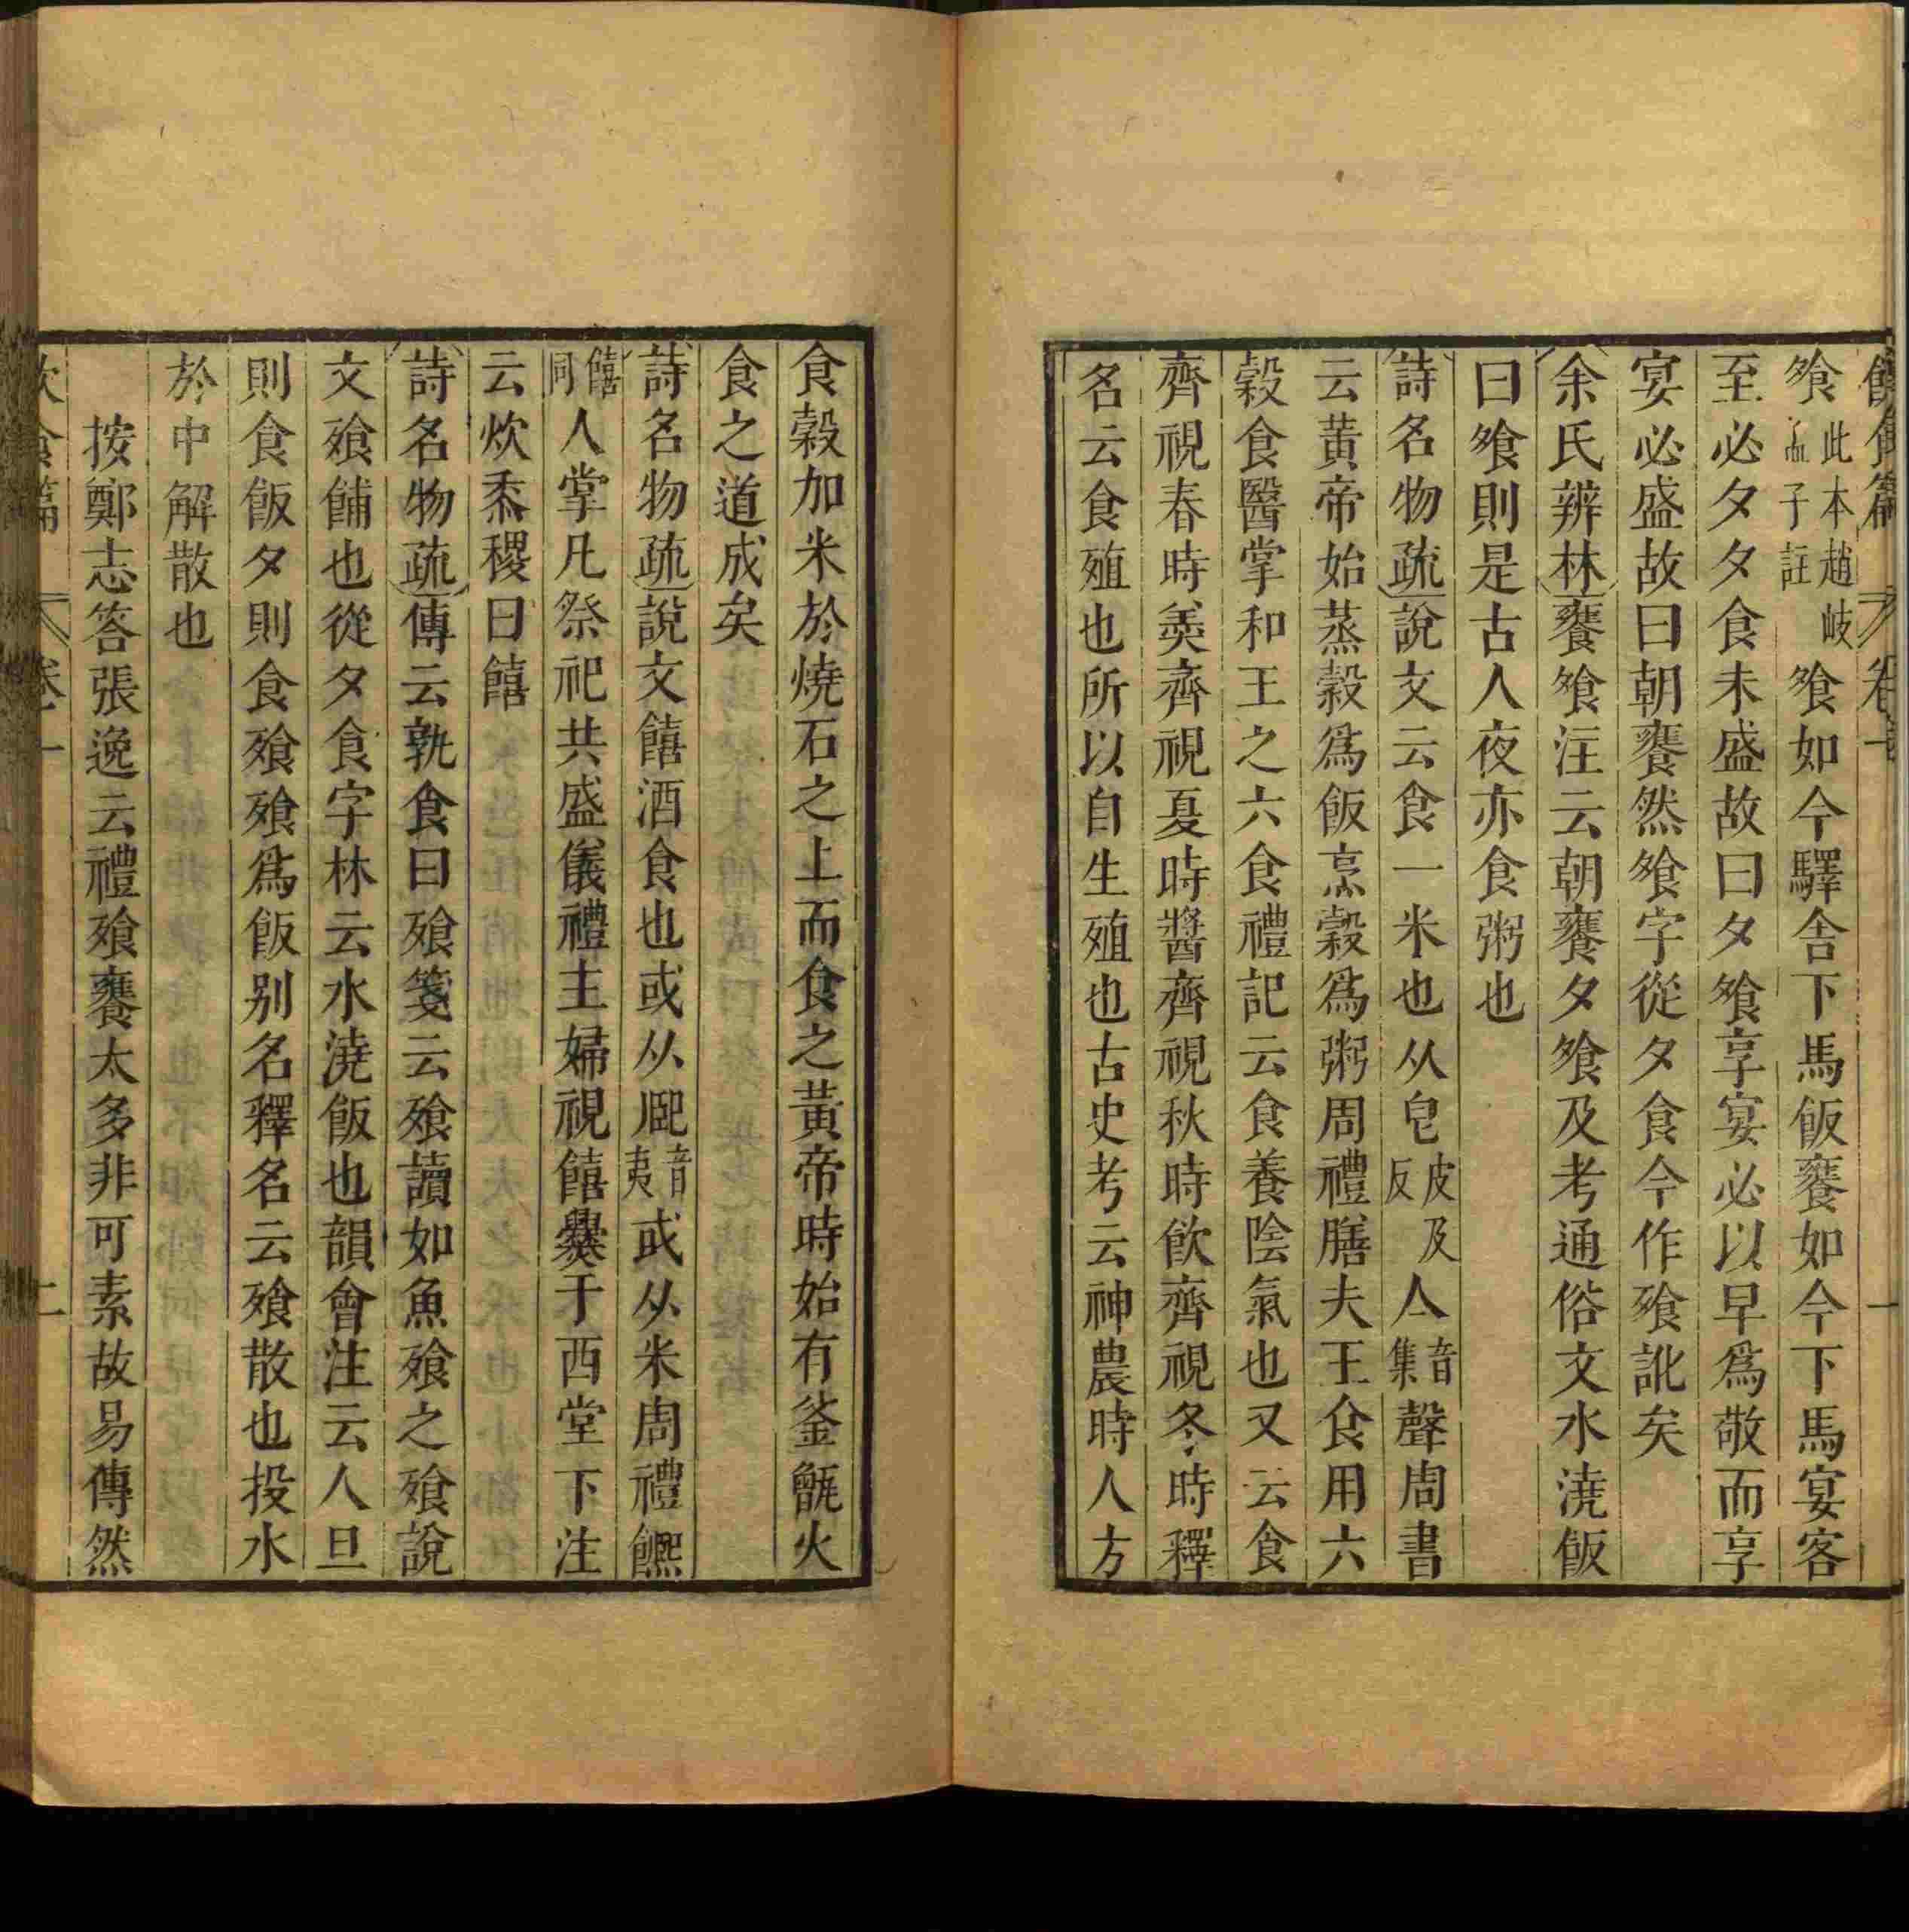 飧此本趙岐孟子註飧如今驛舍下馬飯饔如今下馬宴客
至必夕夕食未盛故曰夕飱享宴必以早爲敬而享
宴必盛故曰朝饔然飱字從夕食今作飱訛矣
余氏辨林饔飱注云朝饔夕飱及考通俗文水澆飯
曰飱則是古人夜亦食粥也
詩名物疏說文云食一米也从皀皮及反亼音集聲周書
云黃帝始蒸穀爲飯烹穀爲粥周禮膳夫王食用六
穀食醫掌和王之六食禮記云食養陰氣也又云食
齊視春時羹齊視夏時醬齊視秋時飲齊視冬時釋
名云食殖也所以自生殖也古史考云神農時人方
食穀加米於燒石之上而食之黃帝時始有釜甑火
食之道成矣
詩名物疏說文饎酒食也或从巸音夷或从米周禮饎
饎同人掌凡祭祀共盛儀禮主婦視饎爨于西堂下注
云炊黍稷曰饎
詩名物疏傳云孰食曰飱箋云飱讀如魚飱之飱說
文飱餔也從夕食字林云水澆飯也韻會注云人旦
則食飯夕則食飱飱爲飯别名釋名云飱散也投水
於中解散也
按鄭志答張逸云禮飱饔太多非可素故易傳然